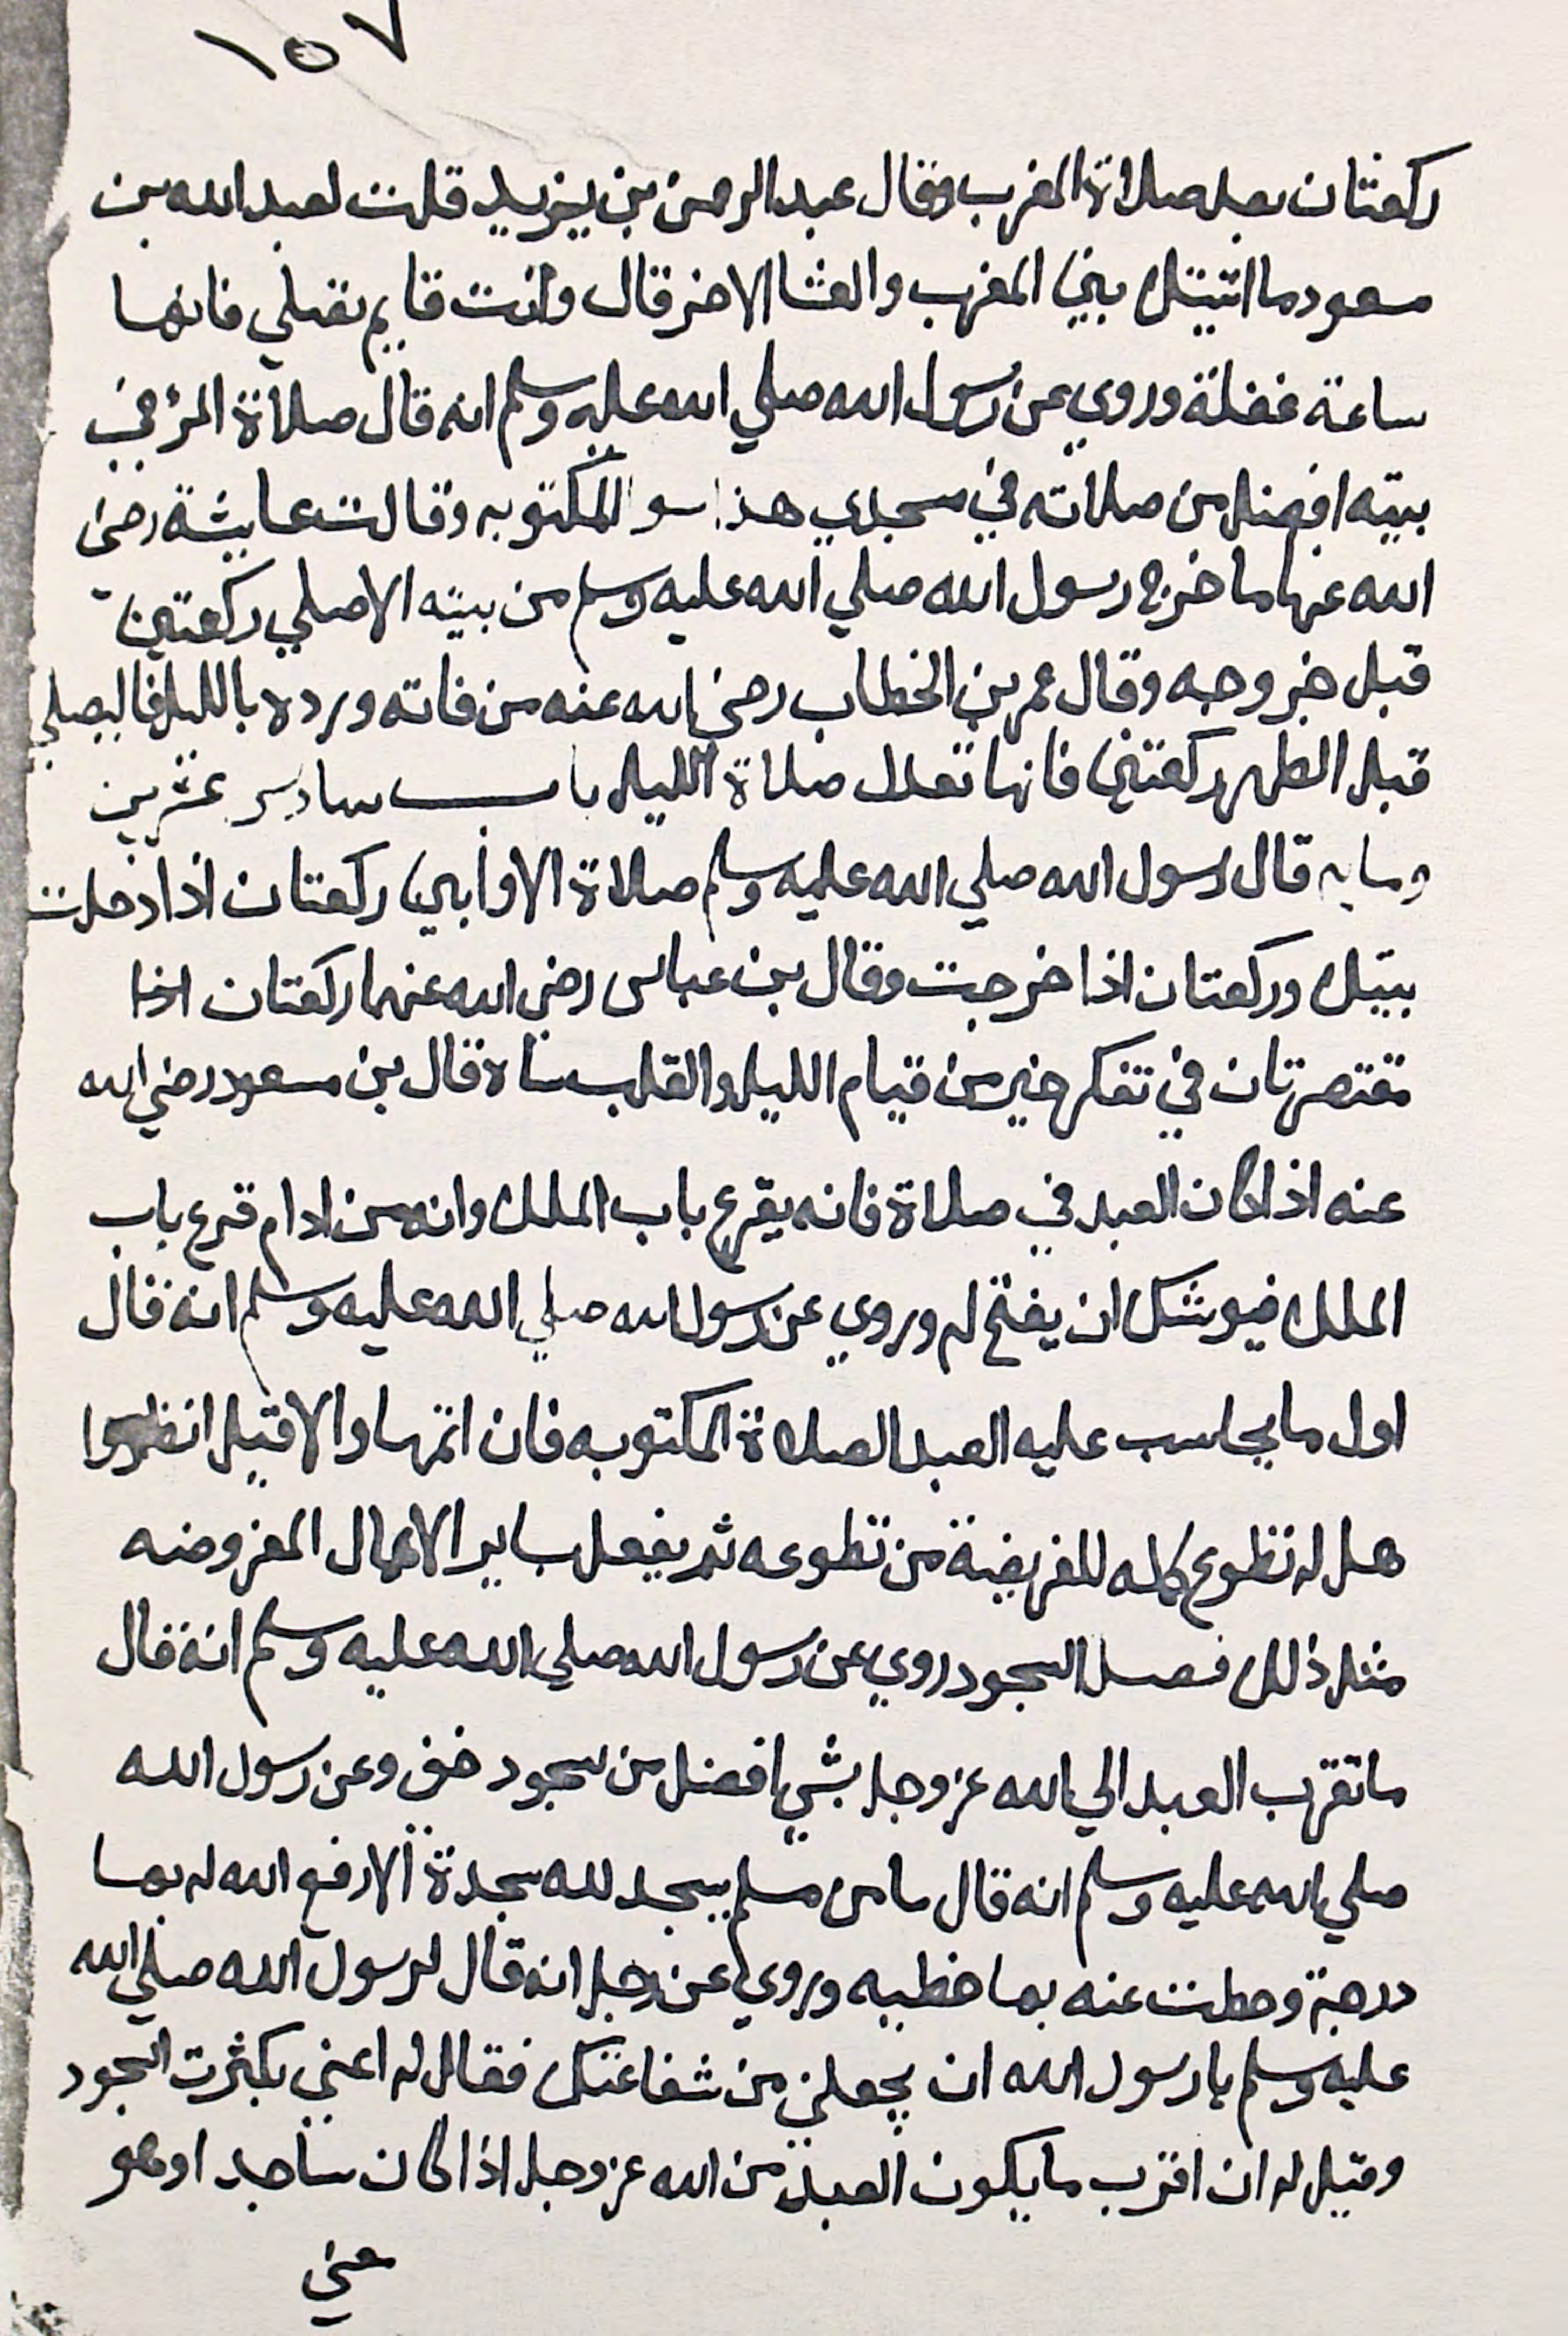 ١٥٧
ركعتان بعد صلاة المغرب وقال عبد الرحمن بن يزيد قلت لعبد الله بن
مسعود ما اتيتك بين المغرب والعشا الاخر قال وانت قايم تصلي فانها
ساعة غفلة وروي عن رسول الله صلي الله عليه وسلم انه قال صلاة المرء في
بيته افضل من صلاته في مسجدي هذا سوا المكتوبه وقالت عايشة رضي
الله عنها ما خرج رسول الله صلي الله عليه وسلم من بيته الا صلي ركعتين
قبل خروجه وقال عمر بن الخطاب رضي الله عنه من فاته ورده بالليل فاليصلي
قبل الظهر ركعتين فانها تعدل صلاة الليل باب سادس عشرين
ومايه قال رسول الله صلي الله عليه وسلم صلاة الاوابين ركعتان اذا دخلت
بيتك وركعتان اذا خرجت وقال بن عباس رضي الله عنهما ركعتان اذا
مقتصرتان في تفكر خير من قيام الليل والقلب ساه قال بن مسعود رضي الله
عنه اذا كان العبد في صلاة فانه يقرع باب الملك وانه من ادام قرع باب
الملك فيوشك ان يفتح له وروي عن رسول الله صلي الله عليه وسلم انه قال
اول ما يحاسب عليه العبد الصلاة المكتوبه فان اتمها والا قيل انظروا
هل له تطوع كمله للفريضة من تطوعه ثم يفعل ساير الاعمال المفروضه
مثل ذلك فصل السجود روي عن رسول الله صلي الله عليه وسلم انه قال
ما تقرب العبد الي الله عز وجل بشي افضل من سجود خفي وعن رسول الله
صلي الله عليه وسلم انه قال ما من مسلم يسجد لله سجدة الا رفع الله له بها
درجة وحطت عنه بها خطيه وروي عن رجل انه قال لرسول الله صلي الله
عليه وسلم يا رسول الله ان يجعلني من شفاعتك فقال له اعني بكثرت السجود
وقيل له ان اقرب ما يكون العبد من الله عز وجل اذا كان ساجد او هو
معني